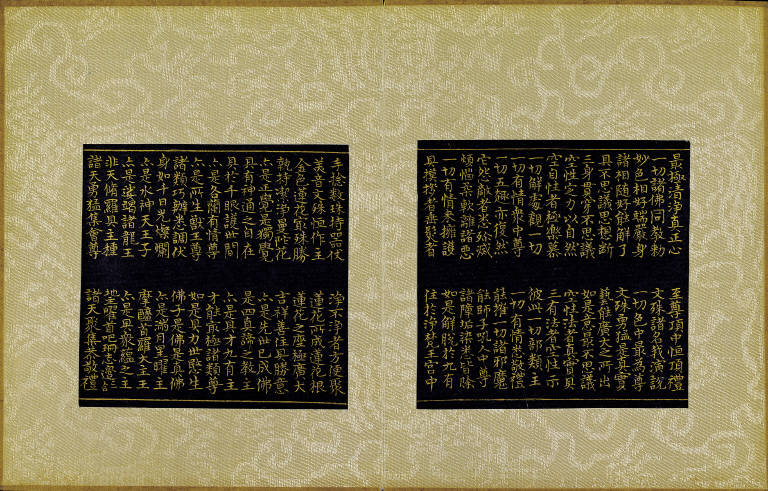 最極清淨真正心　至尊頂中恒頂禮
一切諸佛同教勅　文殊諸名我演說
妙色相好端嚴身　一切色中最為尊
諸相隨好能解了　文殊勇猛是真實
具不思議思想斷　執能廣大之所出
三身貫穿不思議　如是意意最不思議
空性定力以自然　空性法者真實具
空自性者極樂慕　三有法者空性示
一切解處觀一切　彼此一切部類主
一切有情衆中尊　一切有情悉敬禮
一切五趣亦復然　能摧一切諸邪魔
怨敵者悉除滅　能師子吼人中尊
煩惱柔軟離諸惡　諸障垢染悉皆除
一切有情來擁護　如是解脫於九有
具模樣者無影者　住於淨梵王宮中
手捻數珠持器仗　淨不淨者方便聚
美音文殊恒作主　蓮花所成蓮花根
金色蓮花最殊勝　蓮花之座極廣大
執持潔淨曼陀花　吉祥善住具勝意
亦是正覺是獨覺　亦是先世已成佛
具有神通之自在　是四真諦之教主
具於千眼護世間　亦是具才九有主
亦是有情尊　才能最極諸類尊
亦是所生獸王尊　如是具力世照生
諸類巧辯悉調伏　佛子是佛是真佛
身如千日光燦爛　亦是滿月星曜主
亦是水神天王子　摩醯首羅大主王
亦是娑竭諸龍王　亦是具聚之主
非天脩羅具主種　地曜首
諸天勇猛集會尊　諸天聚集恭敬禮